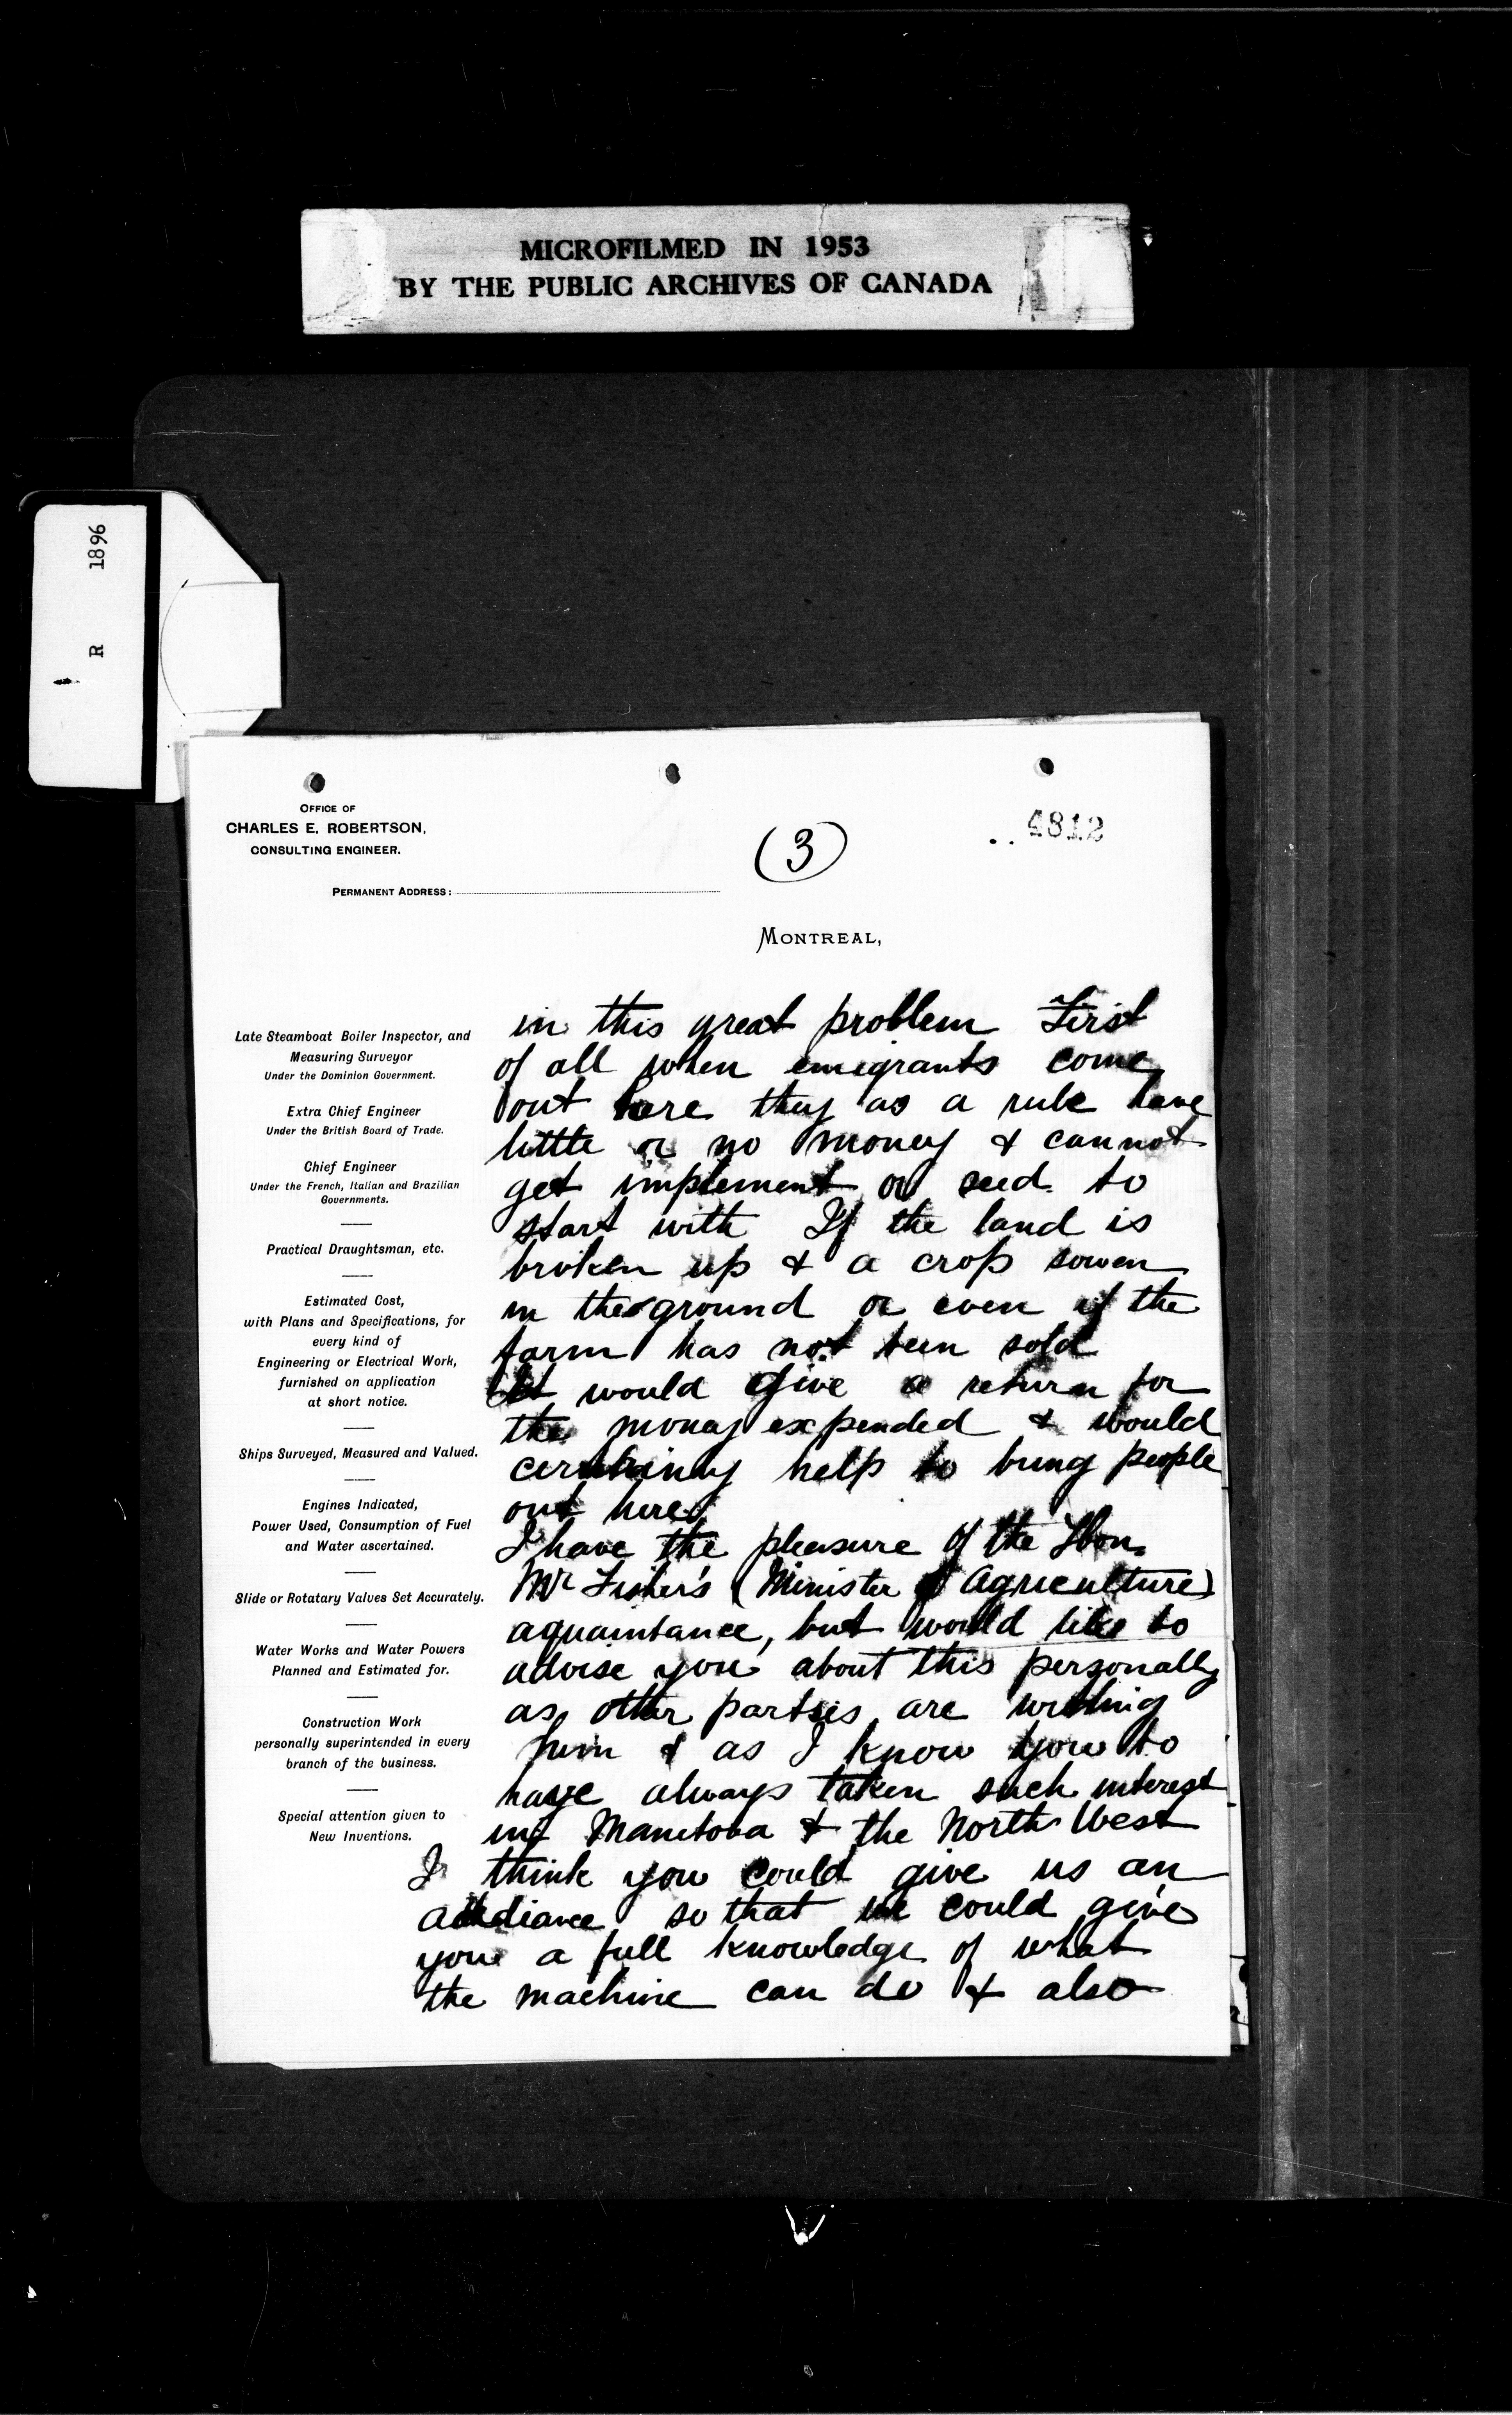 MICROFILMED IN 1953
BY THE PUBLIC ARCHIVES OF CANADA
R 1896
OFFICE OF
CHARLES E. ROBERTSON,
CONSULTING ENGINEER.
(3)
4812
PERMANENT ADDRESS:
MONTREAL,
Late Steamboat Boiler Inspector, and
Measuring Surveyor
Under the Dominion Government.
Extra Chief Engineer
Under the British Board of Trade.
Chief Engineer
Under the French, Italian and Brazilian
Governments.
Practical Draughtsman, etc.
Estimated Cost,
with Plans and Specifications, for
every kind of
Engineering or Electrical Work,
furnished on application
at short notice.
Ships Surveyed, Measured and Valued.
Engines Indicated,
Power Used, Consumption of Fuel
and Water ascertained.
Slide or Rotatary Valves Set Accurately.
Water Works and Water Powers
Planned and Estimated for.
Construction Work
personally superintended in every
branch of the business.
Special attention given to
New Inventions.
in this great problem First
of all when emigrants come
out here they as a rule have
little or no money & cannot
get implement or seed to
start with If the land is
broken up & a crop sowen
in the ground or even if the
farm has not been sold
it would give a return for
the money expended & would
certainly help to bring people
out here
I have the pleasure of the Hon.
Mr Fisher's (Minister of Agriculture)
aquaintance, but would like to
advise you about this personally
as other parties are writing
him & as I know you to
have always taken such interest
in Manitoba & the North West
I think you could give us an
audiance so that we could give
you a full knowledge of what
the machine can do & also